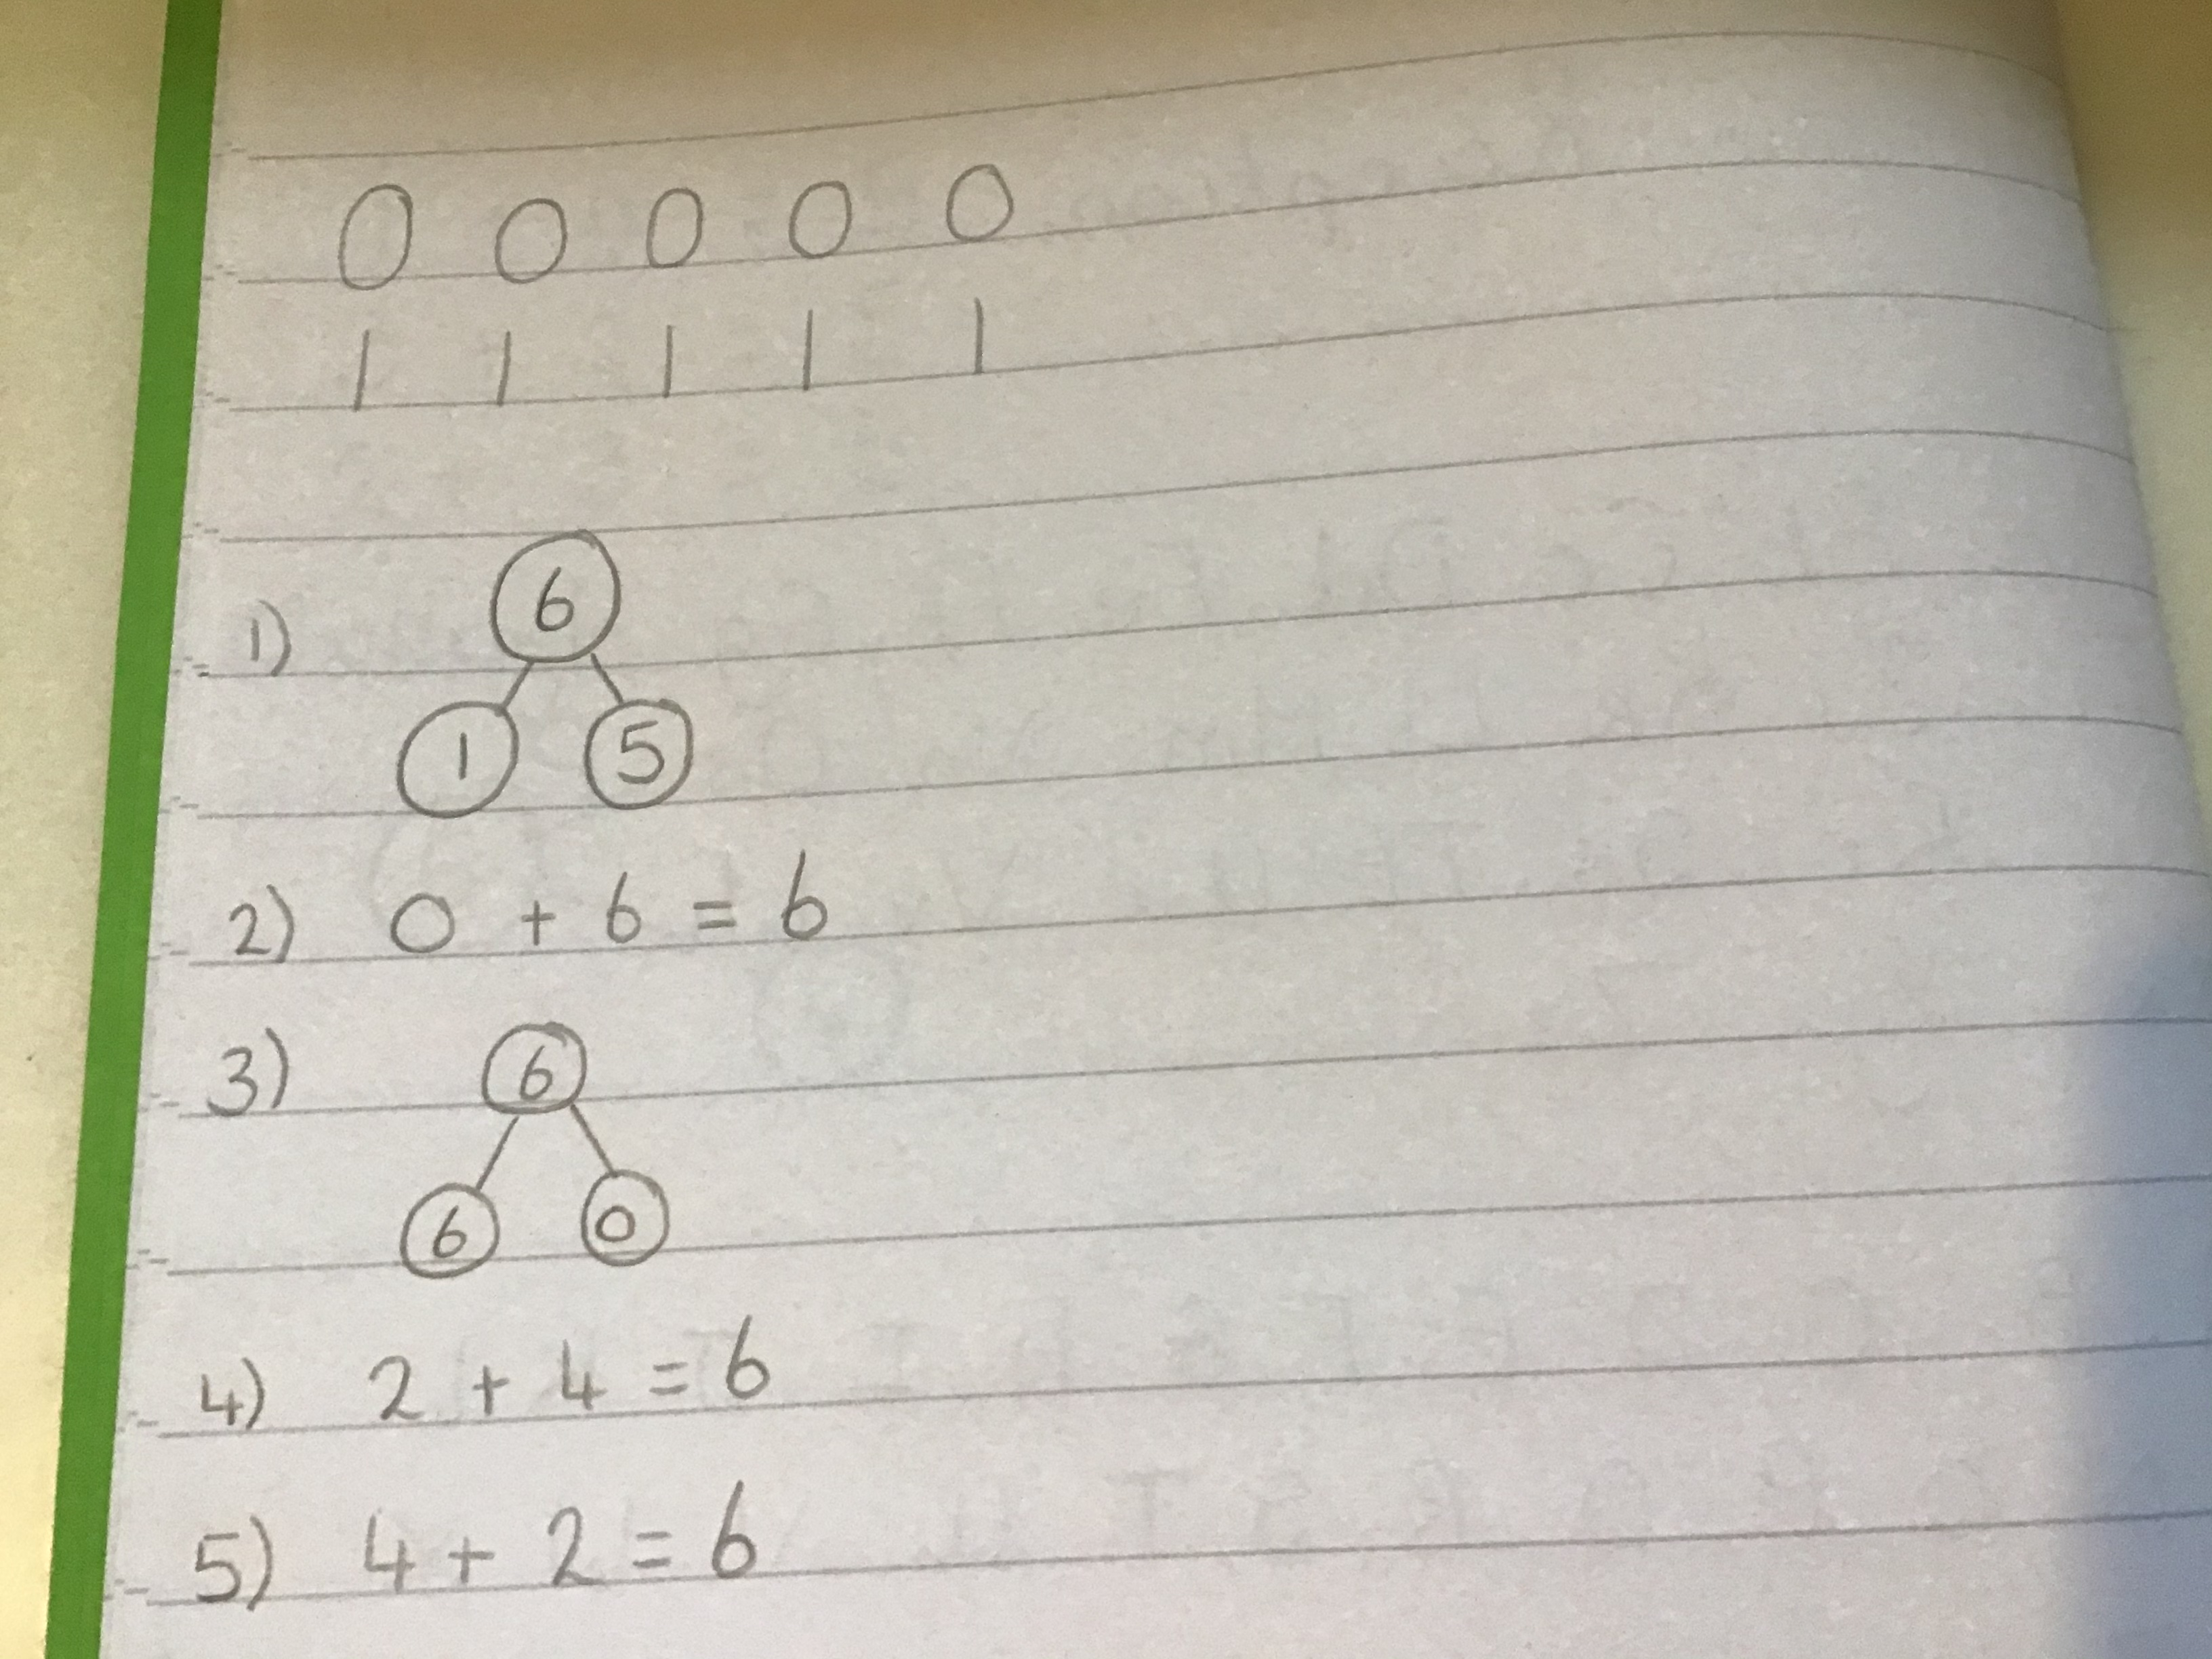 0 0 0 0 0
1 1 1 1 1
1) 6
1 5
2) 0 + 6 = 6
3) 6
6 0
4) 2 + 4 = 6
5) 4 + 2 = 6